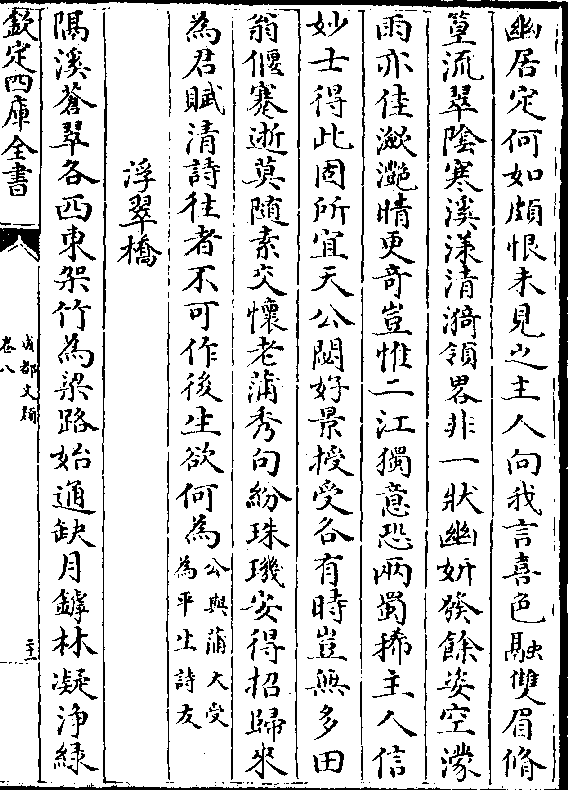 幽居定何如頗恨未見之主人向我言喜色融雙眉脩
篁流翠陰寒溪漾清漪領畧非一狀幽姸發餘姿空濛
雨亦佳瀲灔晴更奇豈惟二江獨意恐兩蜀稀主人信
妙士得此固所宜天公閟好景授受各有時豈無多田
翁偃蹇逝莫随素交懐老蒲秀句紛珠璣安得招歸來
為君賦清詩往者不可作後生欲何為公與蒲大受為平生詩友
浮翠橋
隔溪蒼翠各西東架竹為梁路始通缺月鏬林凝浄緑
欽定四庫全書
成都文類
卷八